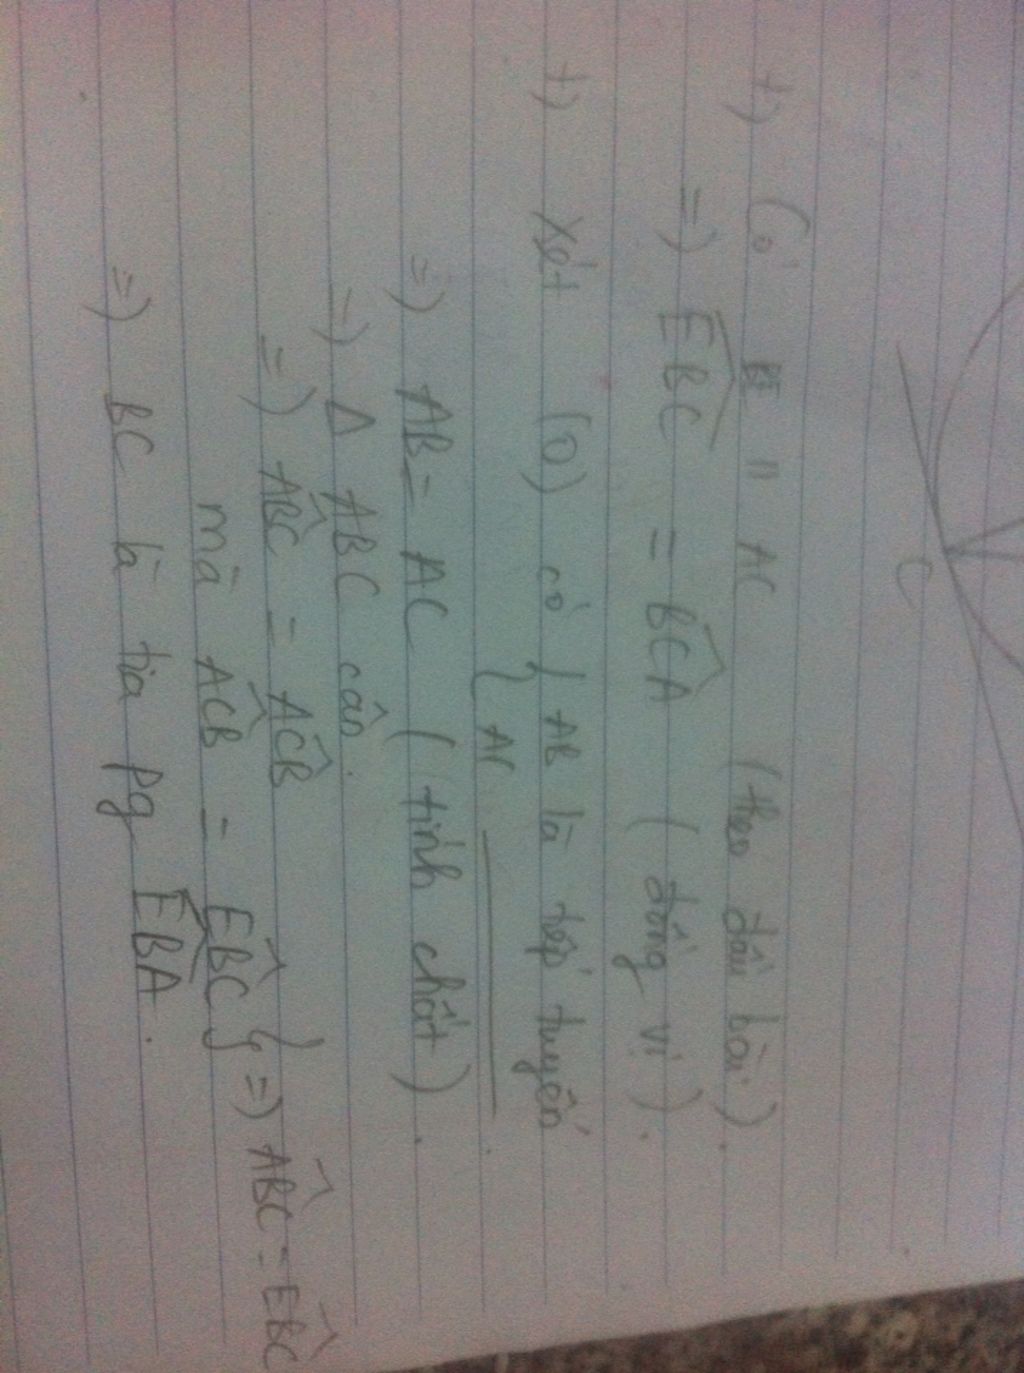 C
+) Có BE // AC (theo đầu bài).
=) EBC = BCA (đồng vị).
+) Xét (O) có { AB là tiếp tuyến
AC ———.
=) AB = AC (tính chất).
=) Δ ABC cân.
=) ABC = ACB
mà ACB = EBC } =) ABC = EBC
=) BC là tia pg EBA.